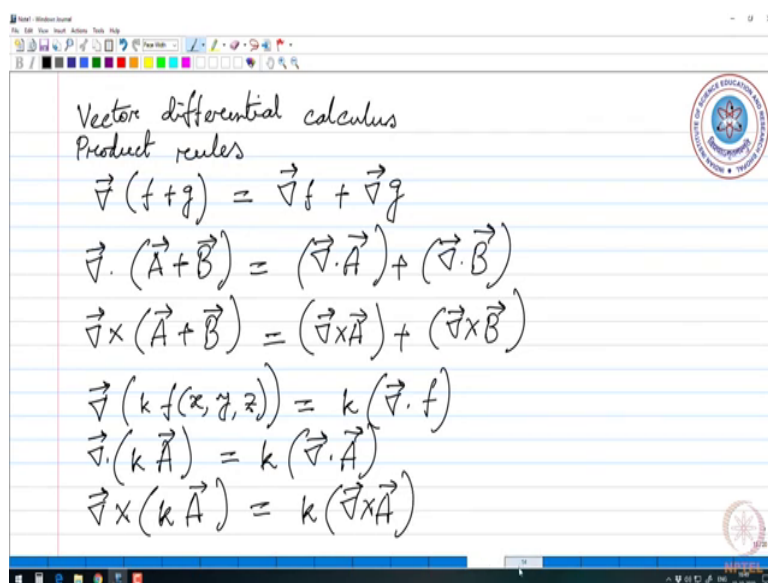 Note1 - Windows Journal
File Edit View Insert Actions Tools Help
Page Width
B I
Vector differential calculus
Product rules
∇⃗(f+g) = ∇⃗f + ∇⃗g
∇⃗·(A⃗+B⃗) = (∇⃗·A⃗)+(∇⃗·B⃗)
∇⃗×(A⃗+B⃗) = (∇⃗×A⃗)+(∇⃗×B⃗)
∇⃗(k f(x,y,z)) = k(∇⃗·f)
∇⃗·(k A⃗) = k(∇⃗·A⃗)
∇⃗×(k A⃗) = k(∇⃗×A⃗)
INDIAN INSTITUTE OF SCIENCE EDUCATION AND RESEARCH BHOPAL
NPTEL
ENG